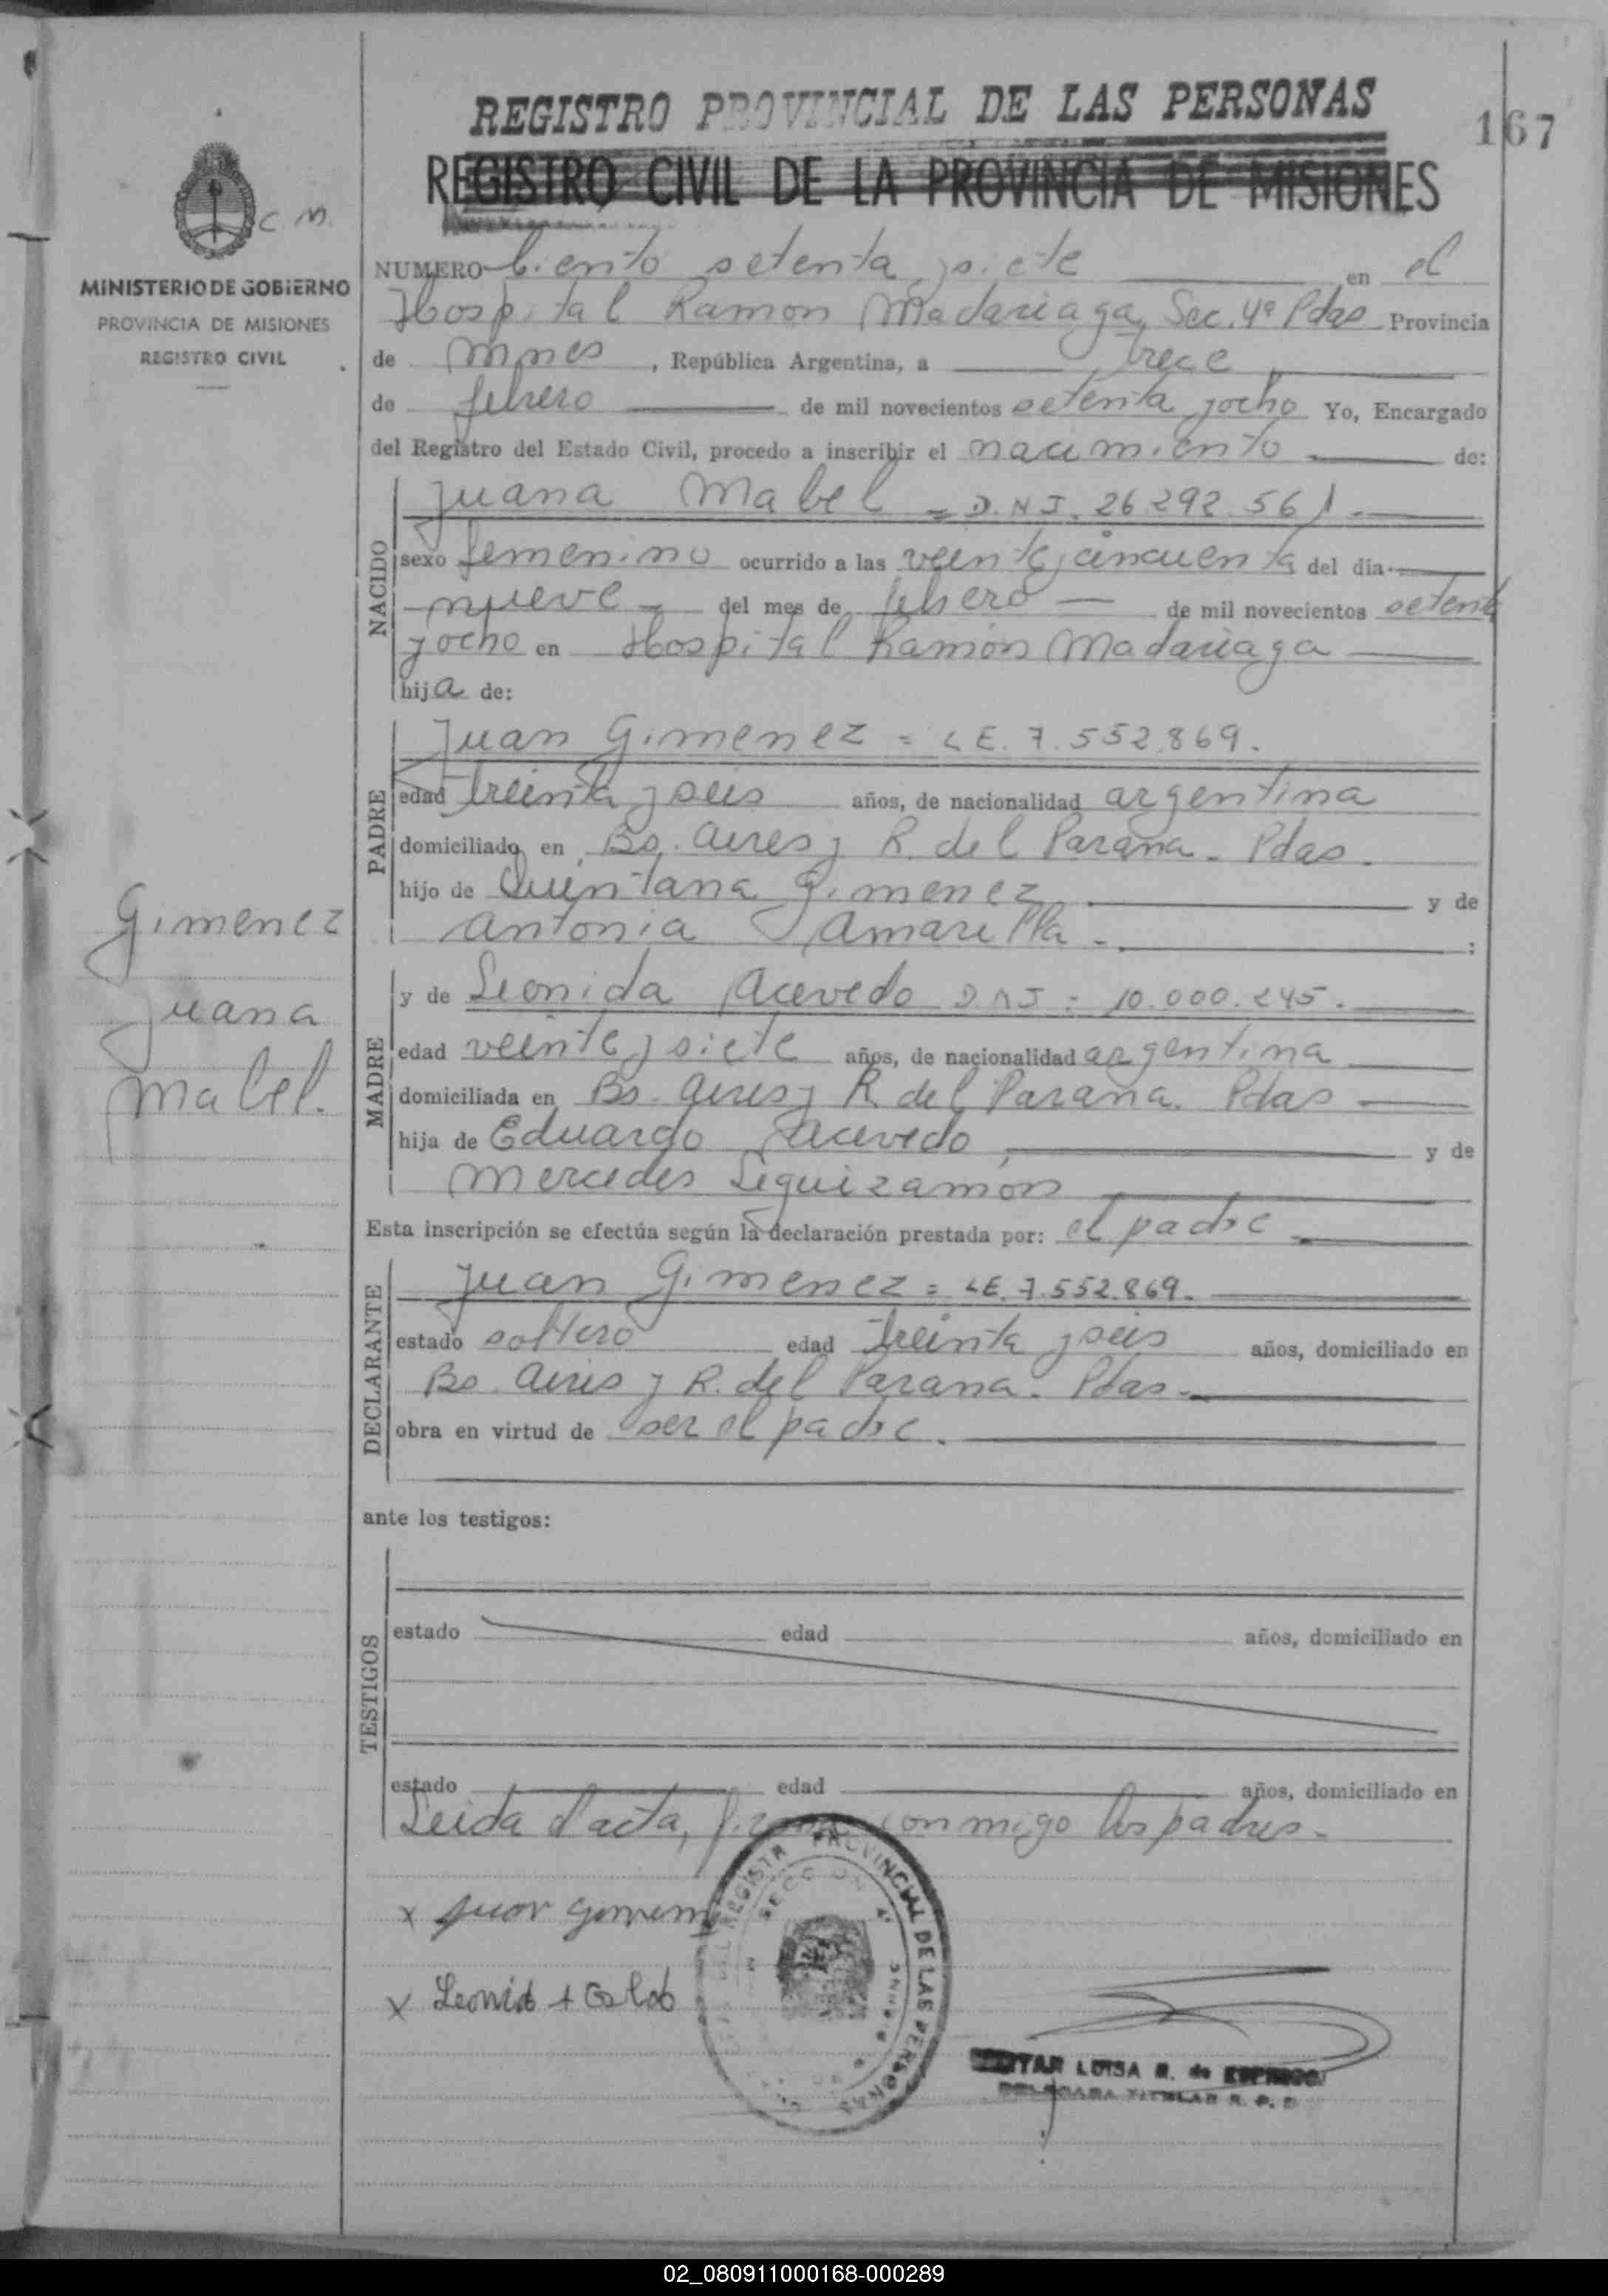 REGISTRO PROVINCIAL DE LAS PERSONAS
167
REGISTRO CIVIL DE LA PROVINCIA DE MISIONES
C M.
MINISTERIO DE GOBIERNO
PROVINCIA DE MISIONES
REGISTRO CIVIL
NUMERO Ciento setenta y siete en el
Hospital Ramon Madariaga, Sec. 4ª Pdas Provincia
de mnes, República Argentina, a trece
de febrero de mil novecientos setenta y ocho Yo, Encargado
del Registro del Estado Civil, procedo a inscribir el nacimiento de:
NACIDO
Juana Mabel = D.N.I. 26.292.561.
sexo femenino ocurrido a las veinte y cincuenta del día
nueve del mes de febrero de mil novecientos setenta
y ocho en Hospital Ramón Madariaga
hija de:
PADRE
Juan Gimenez = LE. 7.552.869.
edad treinta y seis años, de nacionalidad argentina
domiciliado en Bs. Aires y R. del Parana. Pdas.
hijo de Quintana Gimenez y de
Antonia Amarilla.;
Gimenez
Juana
Mabel.
MADRE
y de Leonida Acevedo D.N.I = 10.000.245.
edad veinte y siete años, de nacionalidad argentina
domiciliada en Bs. Aires y R. del Parana. Pdas
hija de Eduardo Acevedo, y de
Mercedes Leguizamon
Esta inscripción se efectúa según la declaración prestada por: el padre
DECLARANTE
Juan Gimenez = LE. 7.552.869.
estado soltero edad treinta y seis años, domiciliado en
Bs. Aires y R. del Parana. Pdas.
obra en virtud de ser el padre.
ante los testigos:
TESTIGOS
estado edad años, domiciliado en
estado edad años, domiciliado en
Leida el acta, firman conmigo los padres.
REGISTR PROVINCIAL DE LAS PERSONAS
SECCION 4ª
x
x
LUISA
TITULAR R. P. P
02_080911000168-000289